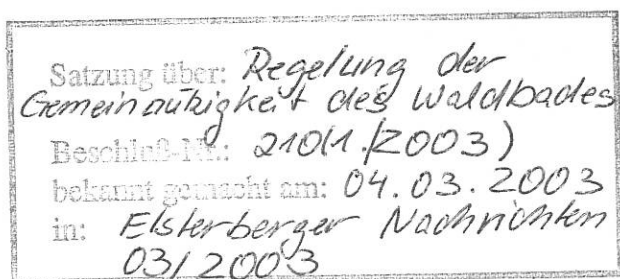 Satzung über: Regelung der
Gemeinnützigkeit des Waldbades
Beschluß-Nr.: 210(1./2003)
bekannt gemacht am: 04.03.2003
in: Elsterberger Nachrichten
03/2003